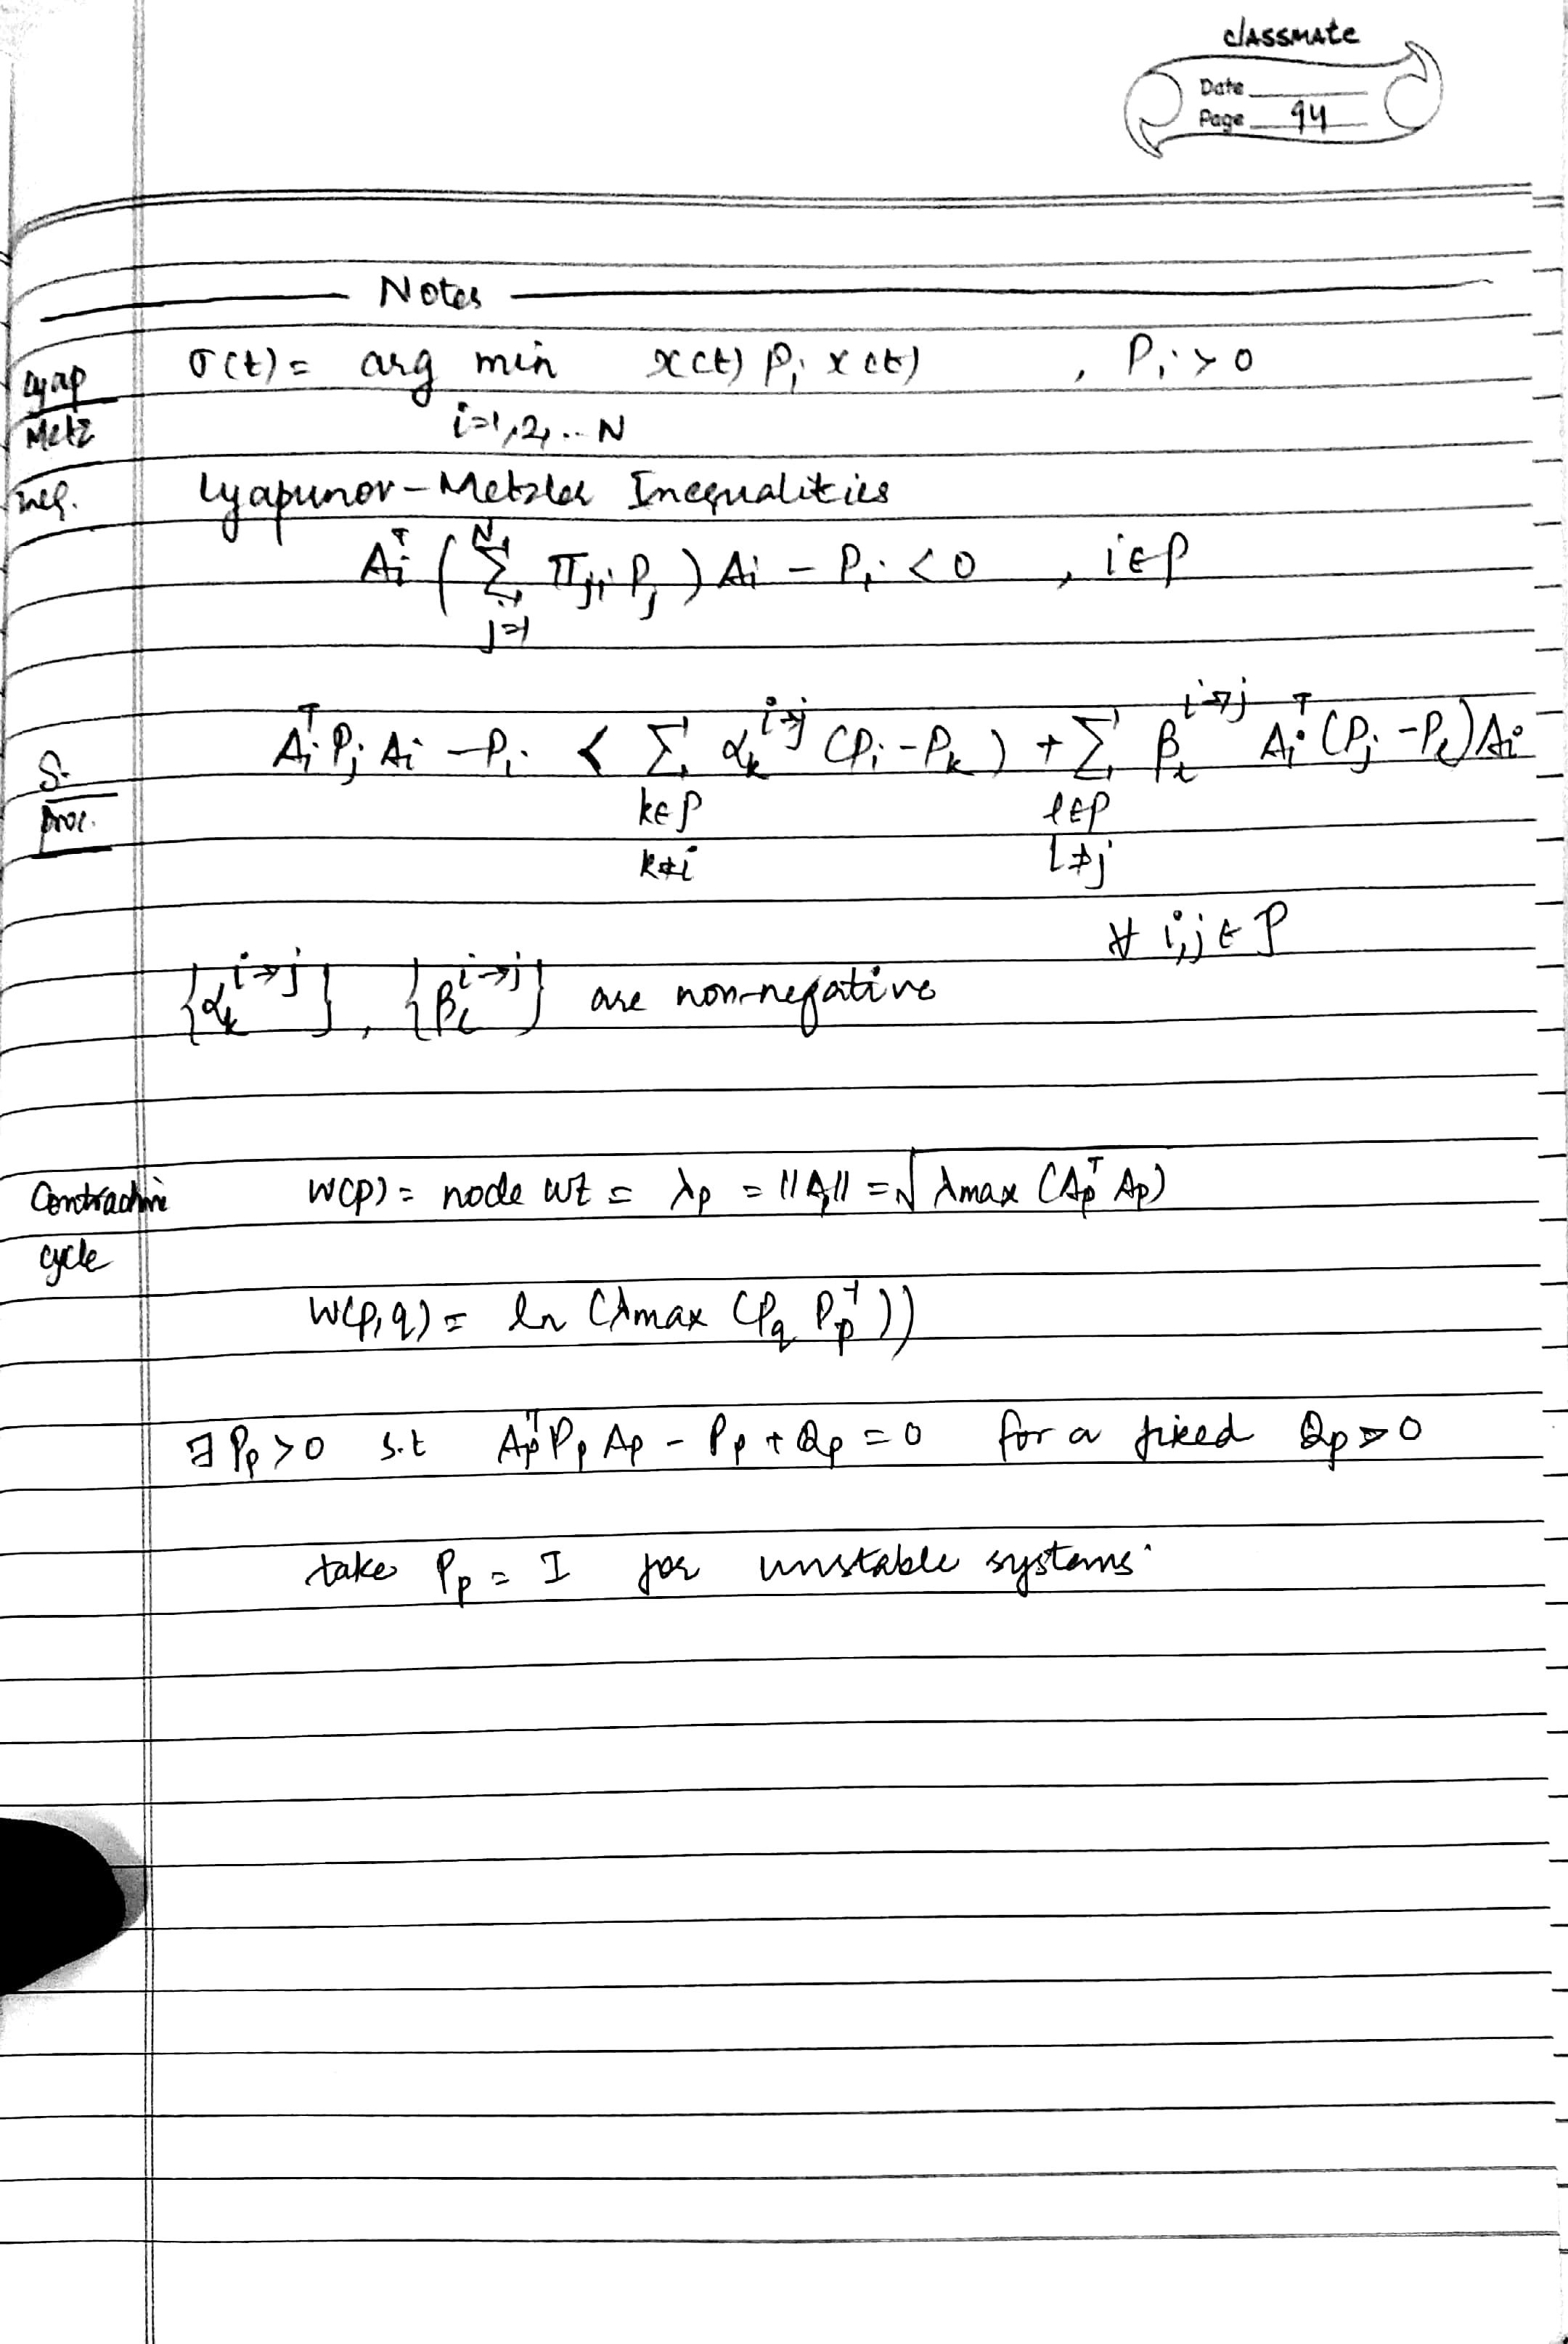 classmate
Date
Page 94
Notes
Lyap Metz Ineq.
σ(t) = arg min x(t) P_i x(t) , P_i > 0
i=1,2,..N
Lyapunov-Metzler Inequalities
A_i^T ( Σ_{j=1}^{N} π_{ji} P_j ) A_i - P_i < 0 , i ∈ P
S- Proc.
A_i^T P_j A_i - P_i < Σ α_k^{i→j} (P_i - P_k) + Σ β_l^{i→j} A_i^T (P_j - P_l) A_i
k∈P l∈P
k≠i l≠j
∀ i,j ∈ P
{α_k^{i→j}}, {β_l^{i→j}} are non-negative
Contractive cycle
w(p) = node wt = λ_p = ||A_p|| = √λmax (A_p^T A_p)
w(p,q) = ln (λmax (P_q P_p^{-1}))
∃ P_p > 0 s.t A_p^T P_p A_p - P_p + Q_p = 0 for a fixed Q_p > 0
take P_p = I for unstable systems.